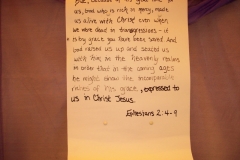 us, God who is rich in mercy, made
us alive with Christ even when
we were dead in transgressions - it
is by grace you have been saved. And
God raised us up and seated us
with him in the heavenly realms
in order that in the coming ages
he might show the incomparable
riches of his grace, expressed to
us in Christ Jesus.
Ephesians 2:4-9